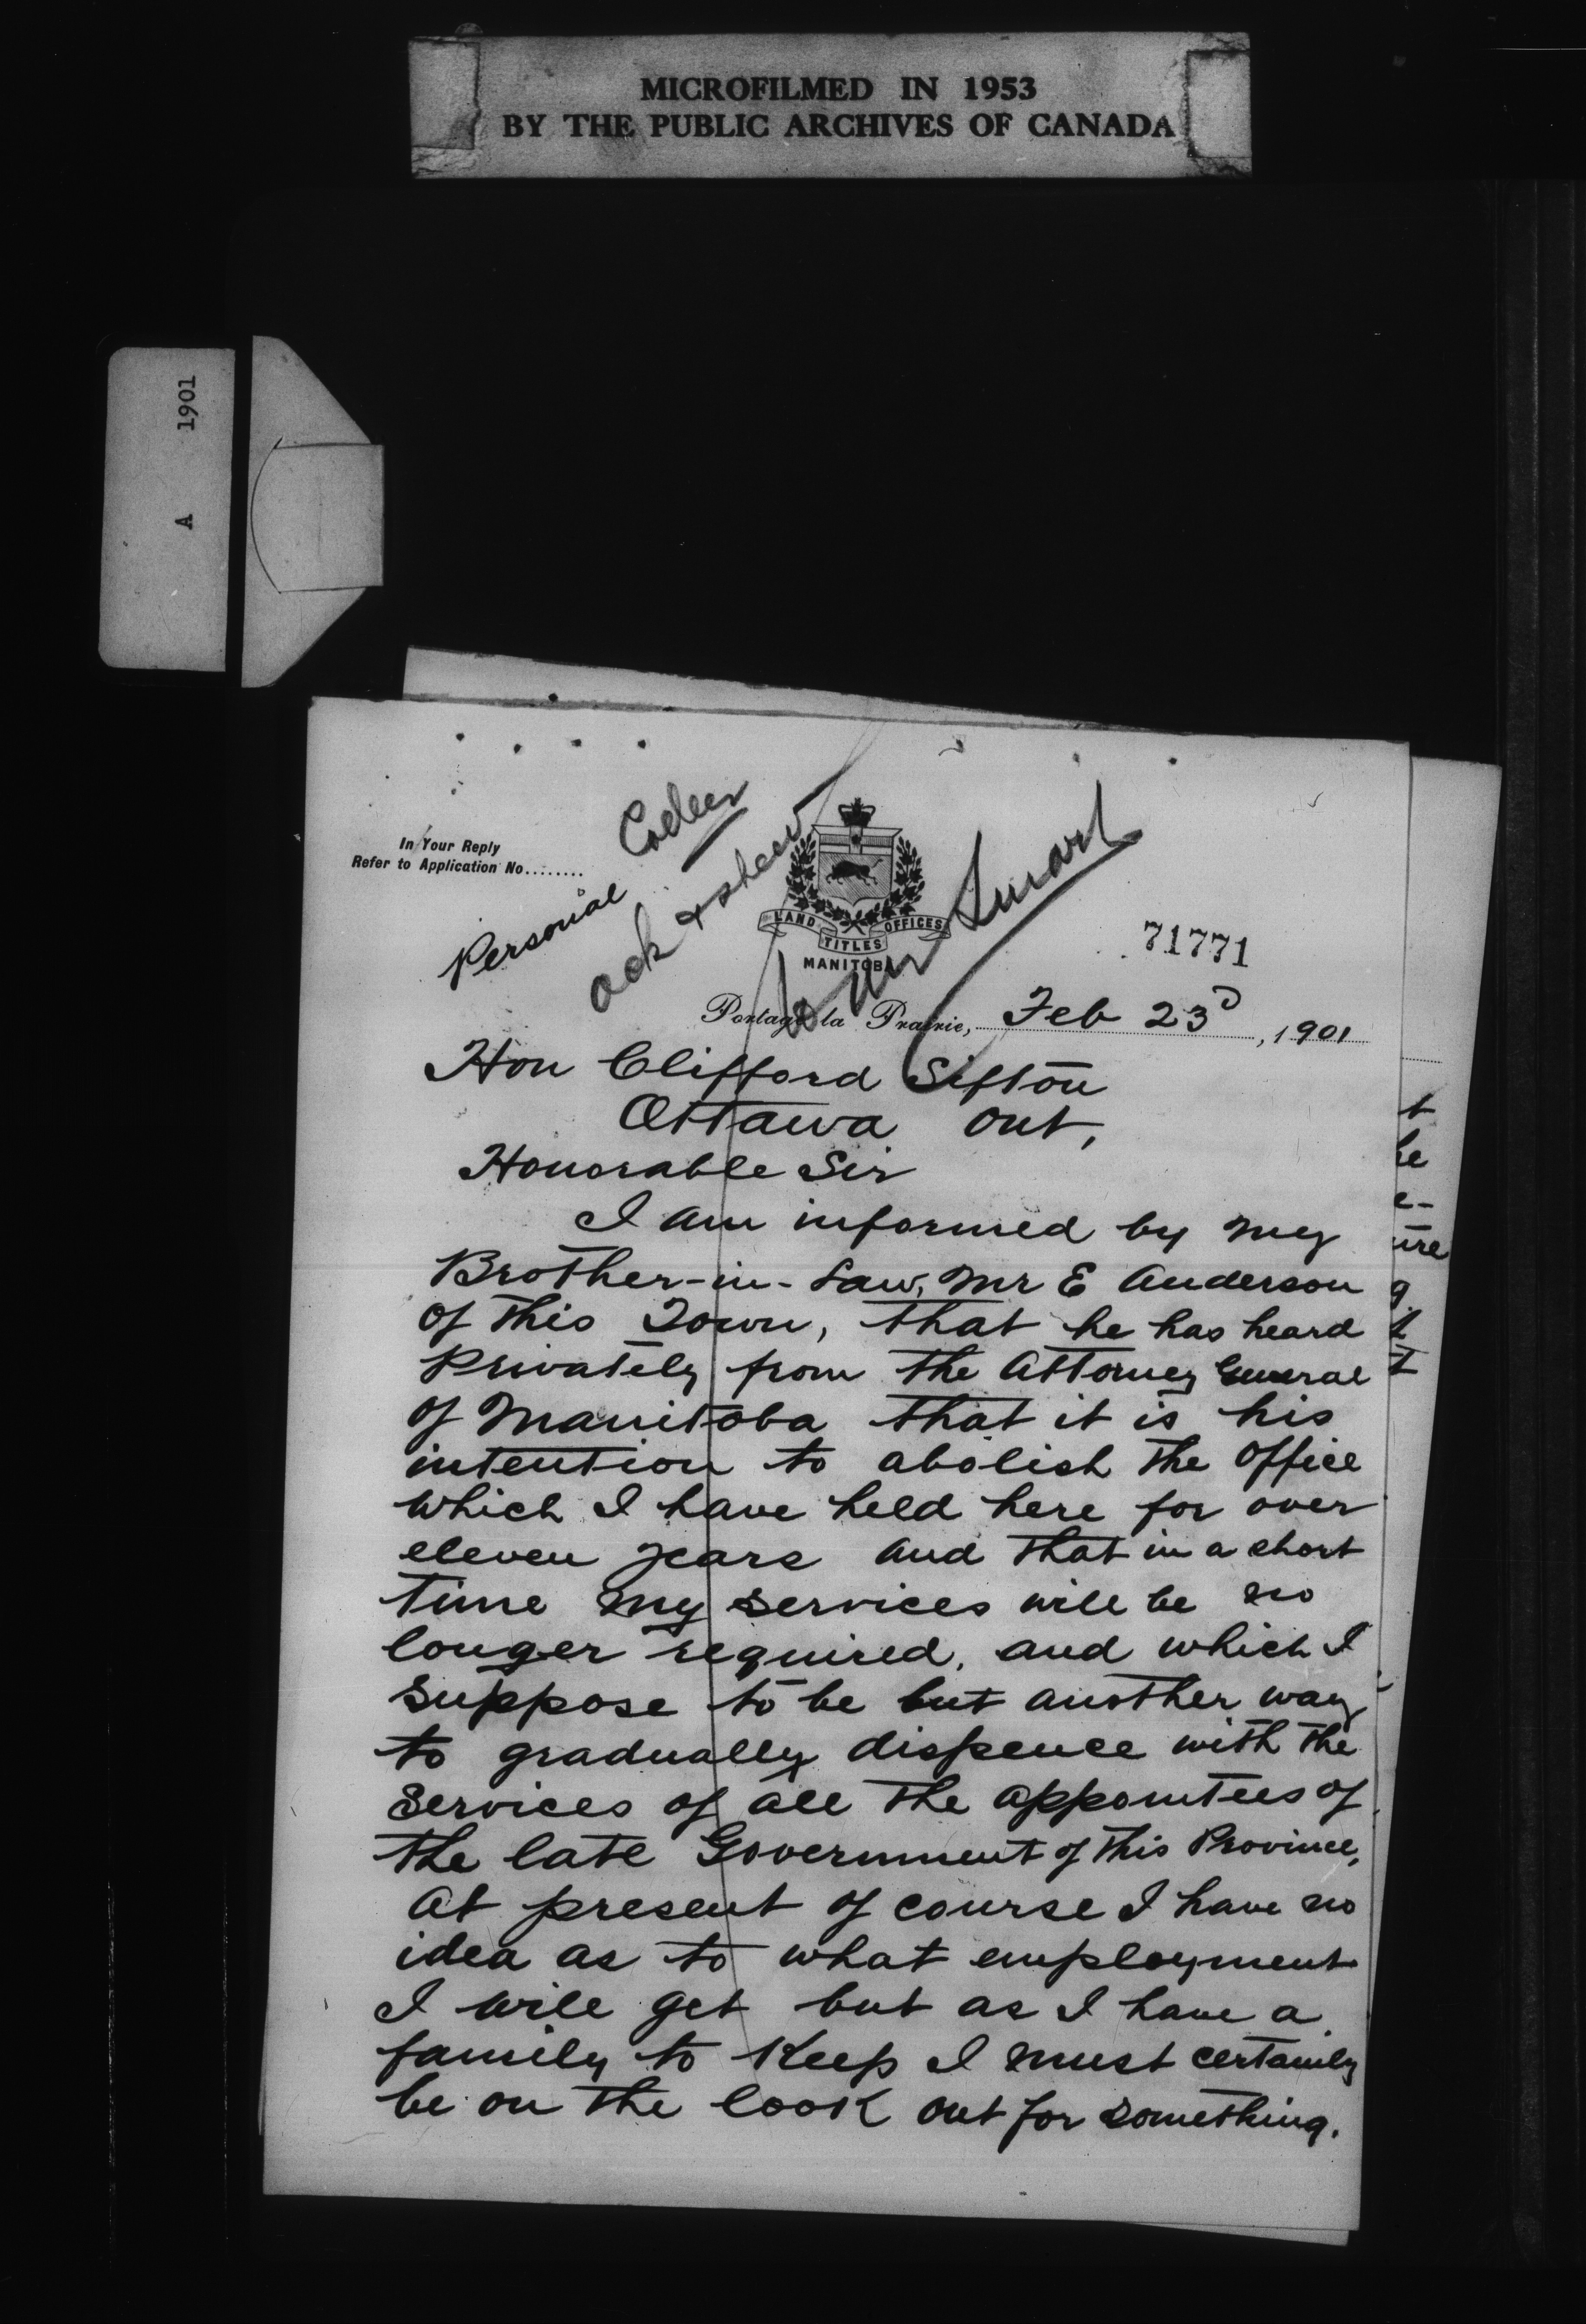 MICROFILMED IN 1953
BY THE PUBLIC ARCHIVES OF CANADA
A 1901
In Your Reply
Refer to Application No........
Personal
ack & shew
to Mr Smart
LAND TITLES OFFICES
MANITOBA
71771
Portage la Prairie, Feb 23d, 1901
Hon Clifford Sifton
Ottawa Ont,
Honorable Sir
I am informed by my
Brother-in-Law, Mr E Anderson
of this Town, that he has heard
Privately from the Attorney General
of Manitoba that it is his
intention to abolish the office
which I have held here for over
eleven years and that in a short
time my services will be no
longer required, and which I
suppose to be but another way
to gradually dispence with the
services of all the appointees of
the late Government of this Province,
At present of course I have no
idea as to what employment
I will get but as I have a
family to Keep I must certainly
be on the look out for something.